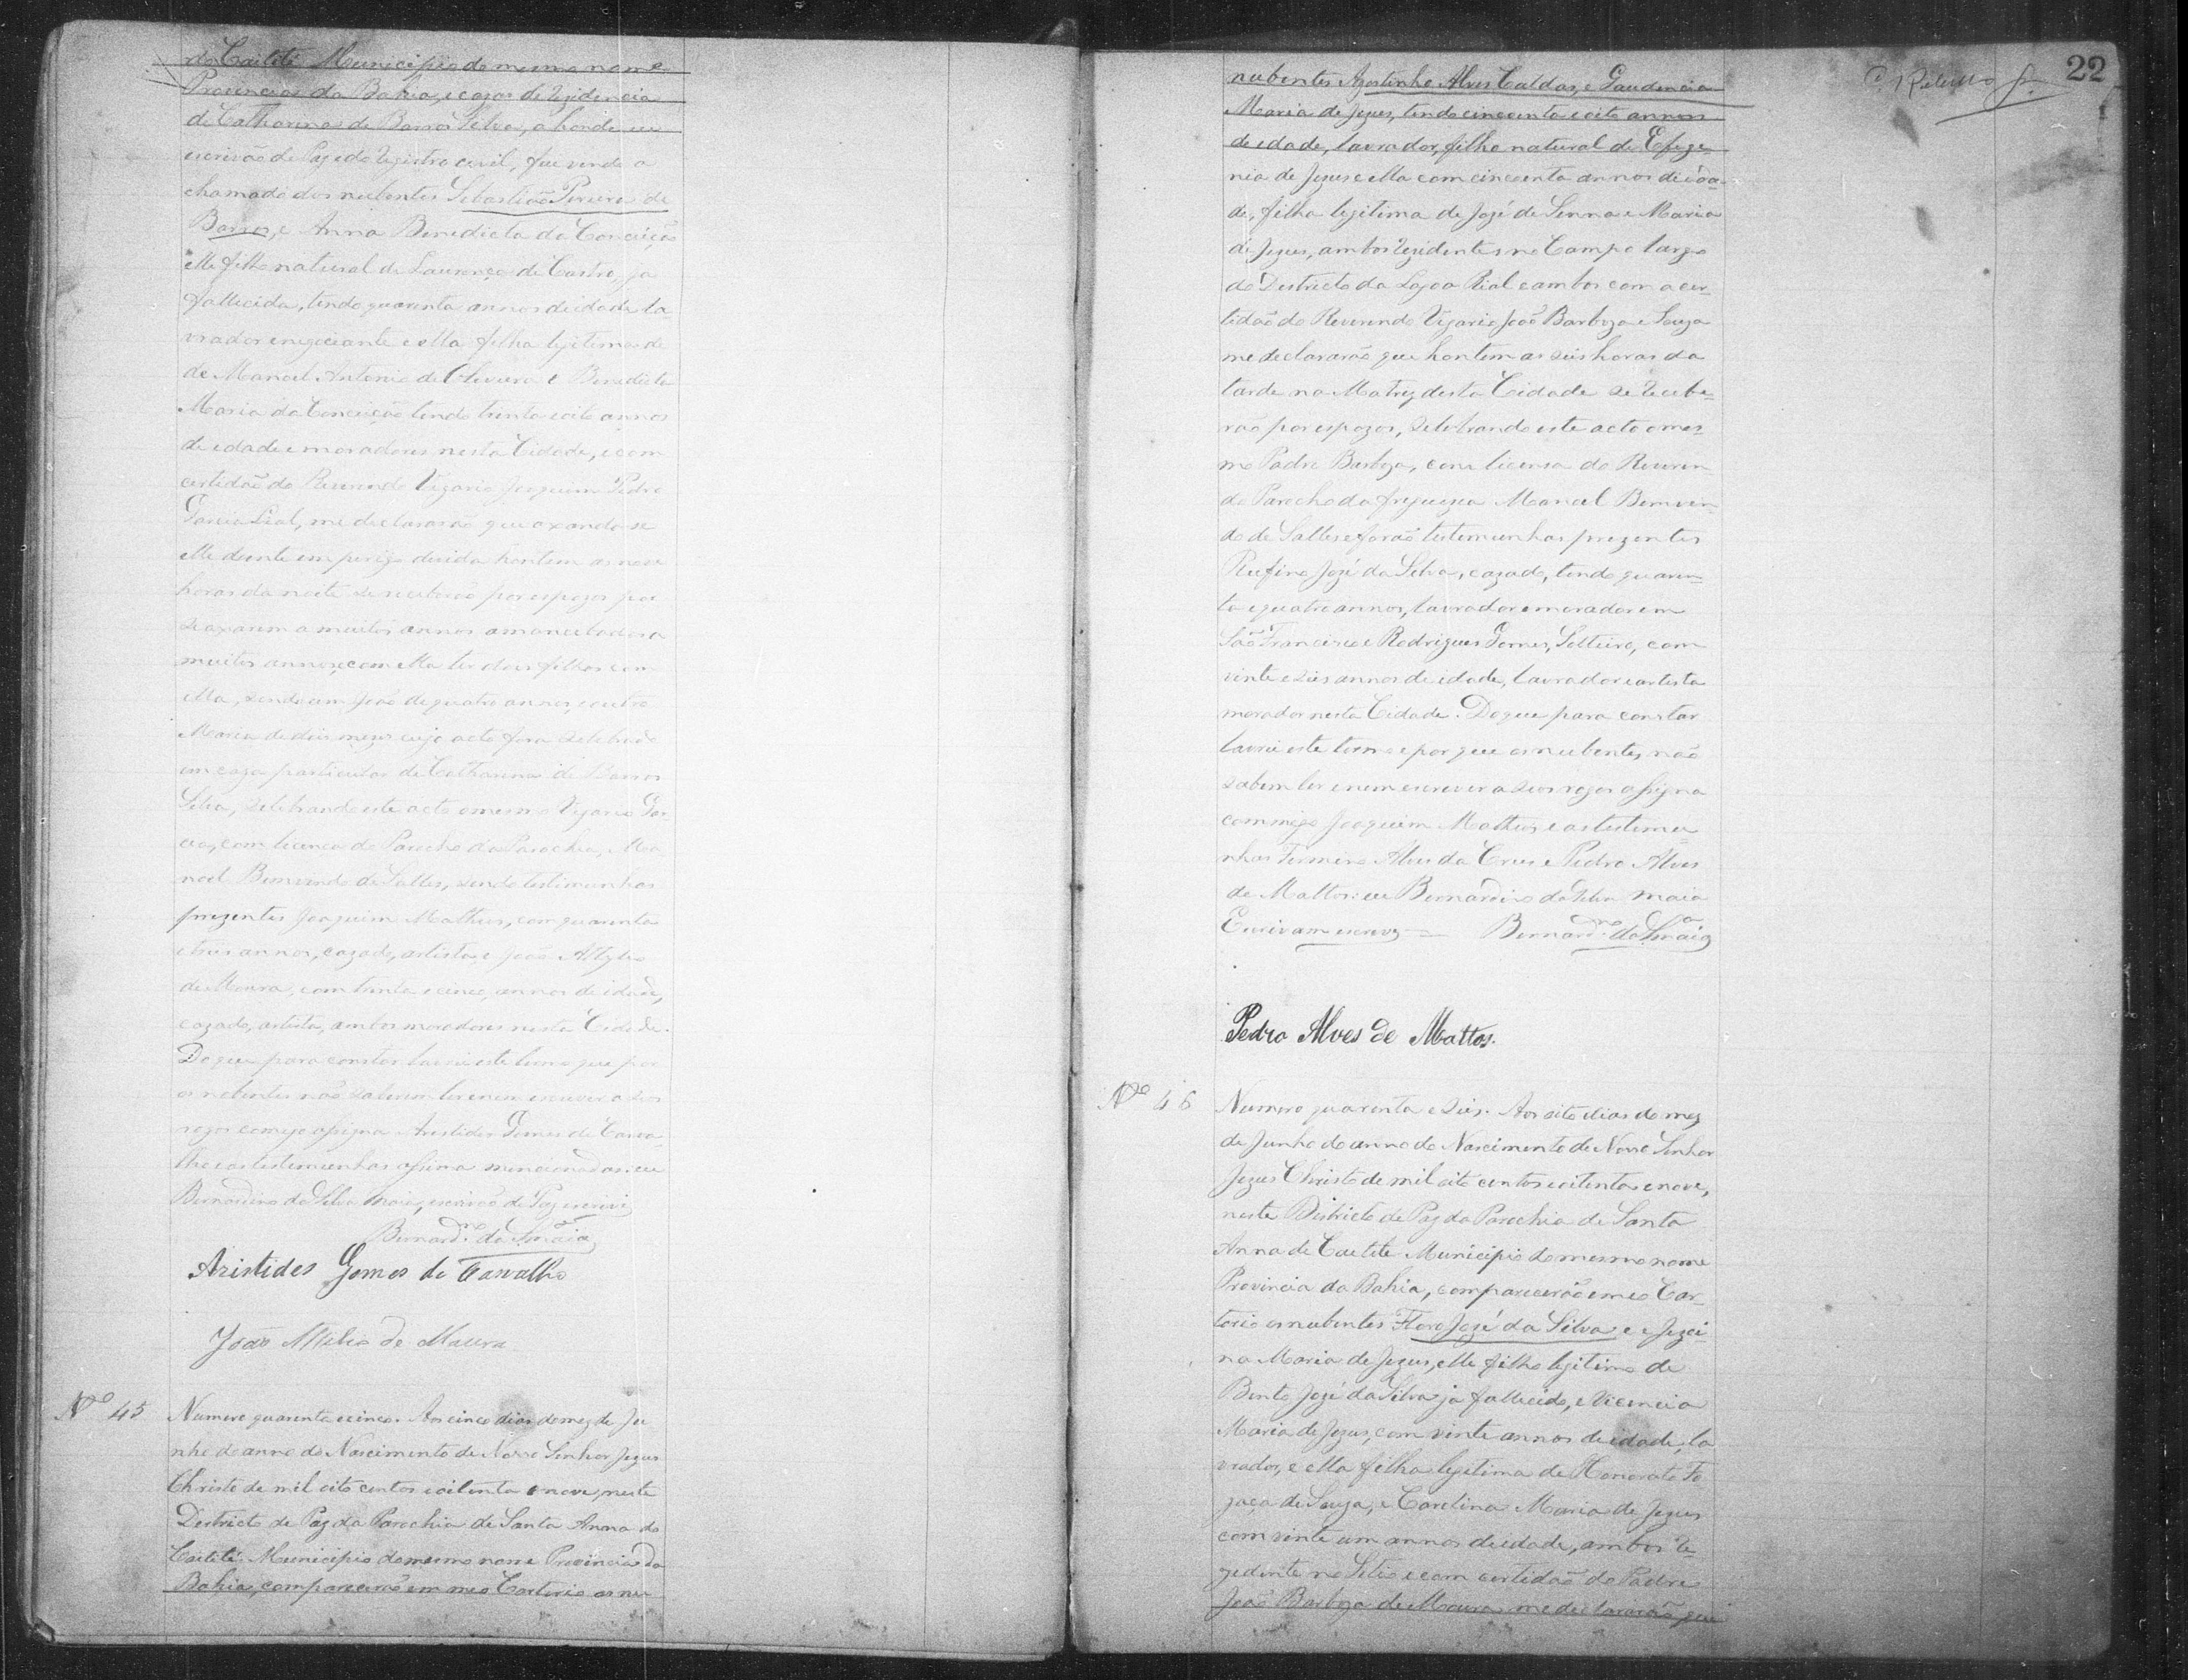 do Caitité Municipio do mesmo nome
Provincia da Bahia, e cazas de rezidencia
de Catharina de Barros Silva, a honde eu
escrivão de Paz e do registro civil, fui vindo a
chamado dos nubentes Sebastião Pereira de
Barros, e Anna Benedicta da Conceição
elle filho natural de Lourença de Castro, ja
fallecida, tendo quarenta annos de idade, la
vrador e negociante e ella filha legitima de
de Manoel Antonio de Oliveira e Benedicta
Maria da Conceição tendo trinta e oito annos
de idade e moradores nesta Cidade, e com
certidão do Reverendo Vigario Joaquim Pedro
Garcia Leal, me declararão que axando-se
elle doente em perigo de vida hontem as nove
horas da noite se receberão por espozos por
se axarem a muitos annos amancebados a
muitos annos, e com ella ter dois filhos com
ella, sendo um João de quatro annos, e outro
Maria de dois mezes cujo acto fora celebrado
em caza particular de Catharina de Barros
Silva, celebrando este acto o mesmo Vigario Gar-
cia, com licença do Parocho da Parochia, Ma-
noel Bemvindo de Salles, sendo testimunhas
prezentes Joaquim Matheus, com quarenta
e trez annos, cazado, artista, e João Attilio
de Moura, com trinta e cinco annos de idade,
cazado, artista, ambos moradores nesta Cidade.
Do que para constar lavrei este termo que por
os nubentes não saberem ler e nem escrever a seos
rogos comigo assigna Aristides Gomes de Carva-
lho e as testimunhas assima mencionadas: eu
Bernardino da Silva Maia, escrivão de Paz escrevi
Bernard.no da S.a Maia
Aristides Gomes de Carvalho
João Attilio de Moura
No 45
Numero quarenta e cinco. Aos cinco dias do mez de Ju
nho do anno do Nascimento de Nosso Senhor Jezus
Christo de mil oito centos e oitenta e nove, neste
Destricto de Paz da Parochia de Santa Anna do
Caitité Municipio do mesmo nome Provincia da
Bahia, comparecerão em meo Cartorio os nu
22
nubentes Agostinho Alves Caldas, e Gaudencia
Maria de Jezus, tendo cincoenta e oito annos
de idade, lavrador, filho natural de Efige-
nia de Jezus e ella com cincoenta annos de ida-
de, filha legitima de Jozé de Senna e Maria
de Jezus, ambos rezidentes no Campo largo
do Destricto da Lagoa Rial e ambos com a cer-
tidão do Reverendo Vigario João Barboza e Souza
me declararão que hontem as seis horas da
tarde na Matriz desta Cidade se recebe-
rão por espozos, selebrando este acto o mes-
mo Padre Barboza, com licensa do Reveren-
do Parocho da freguezia Manoel Bemvin-
do de Salles e forão testimunhas prezentes
Rufino Jozé da Silva, cazado, tendo quaren-
ta e quatro annos, lavrador e morador em
São Francisco e Rodrigues Gomes, Solteiro, com
vinte e seis annos de idade, lavrador e artista
morador nesta Cidade. Do que para constar
lavrei este termo e por que os nubentes não
sabem ler e nem escrever a seos rogos assigna
commigo Joaquim Matheus e as testimu
nhas Firmino Alves da Crus e Pedro Alves
de Mattos: eu Bernardino da Silva Maia
Escrivam escrevy Bernard.no da S.a Maia
Pedro Alves de Mattos.
No 46
Numero quarenta e seis. Aos oito dias do mez
de Junho do anno do Nascimento de Nosso Senhor
Jezus Christo de mil oito centos e oitenta e nove,
neste Districto de Paz da Parochia de Santa
Anna de Caetite Municipio do mesmo nome
Provincia da Bahia, comparecerão em meo Car-
torio os nubentes Floro Jozé da Silva e Jezui-
na Maria de Jezus, elle filho legitimo de
Bento Jozé da Silva ja fallecido, e Vicencia
Maria de Jezus, com vinte annos de idade, la
vrador, e ella filha legitima de Honorato Fo
gaça de Souza, e Carolina Maria de Jezus
com vinte um annos de idade, ambos re-
zidente no Sitio e com certidão do Padre
João Barboza de Moura me declararão que